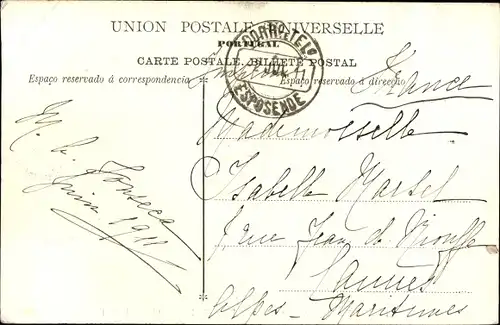 UNION POSTALE UNIVERSELLE
PORTUGAL
CARTE POSTALE. BILHETE POSTAL
Espaço reservado á correspondencia
Espaço reservado á direcção
CORRO E TELO
JUL
11
ESPOSENDE
France
M. L. Fonseca
Juin 1911
Mademoiselle
Isabelle Martel
rue Jean de
Cannes
Alpes - Maritimes